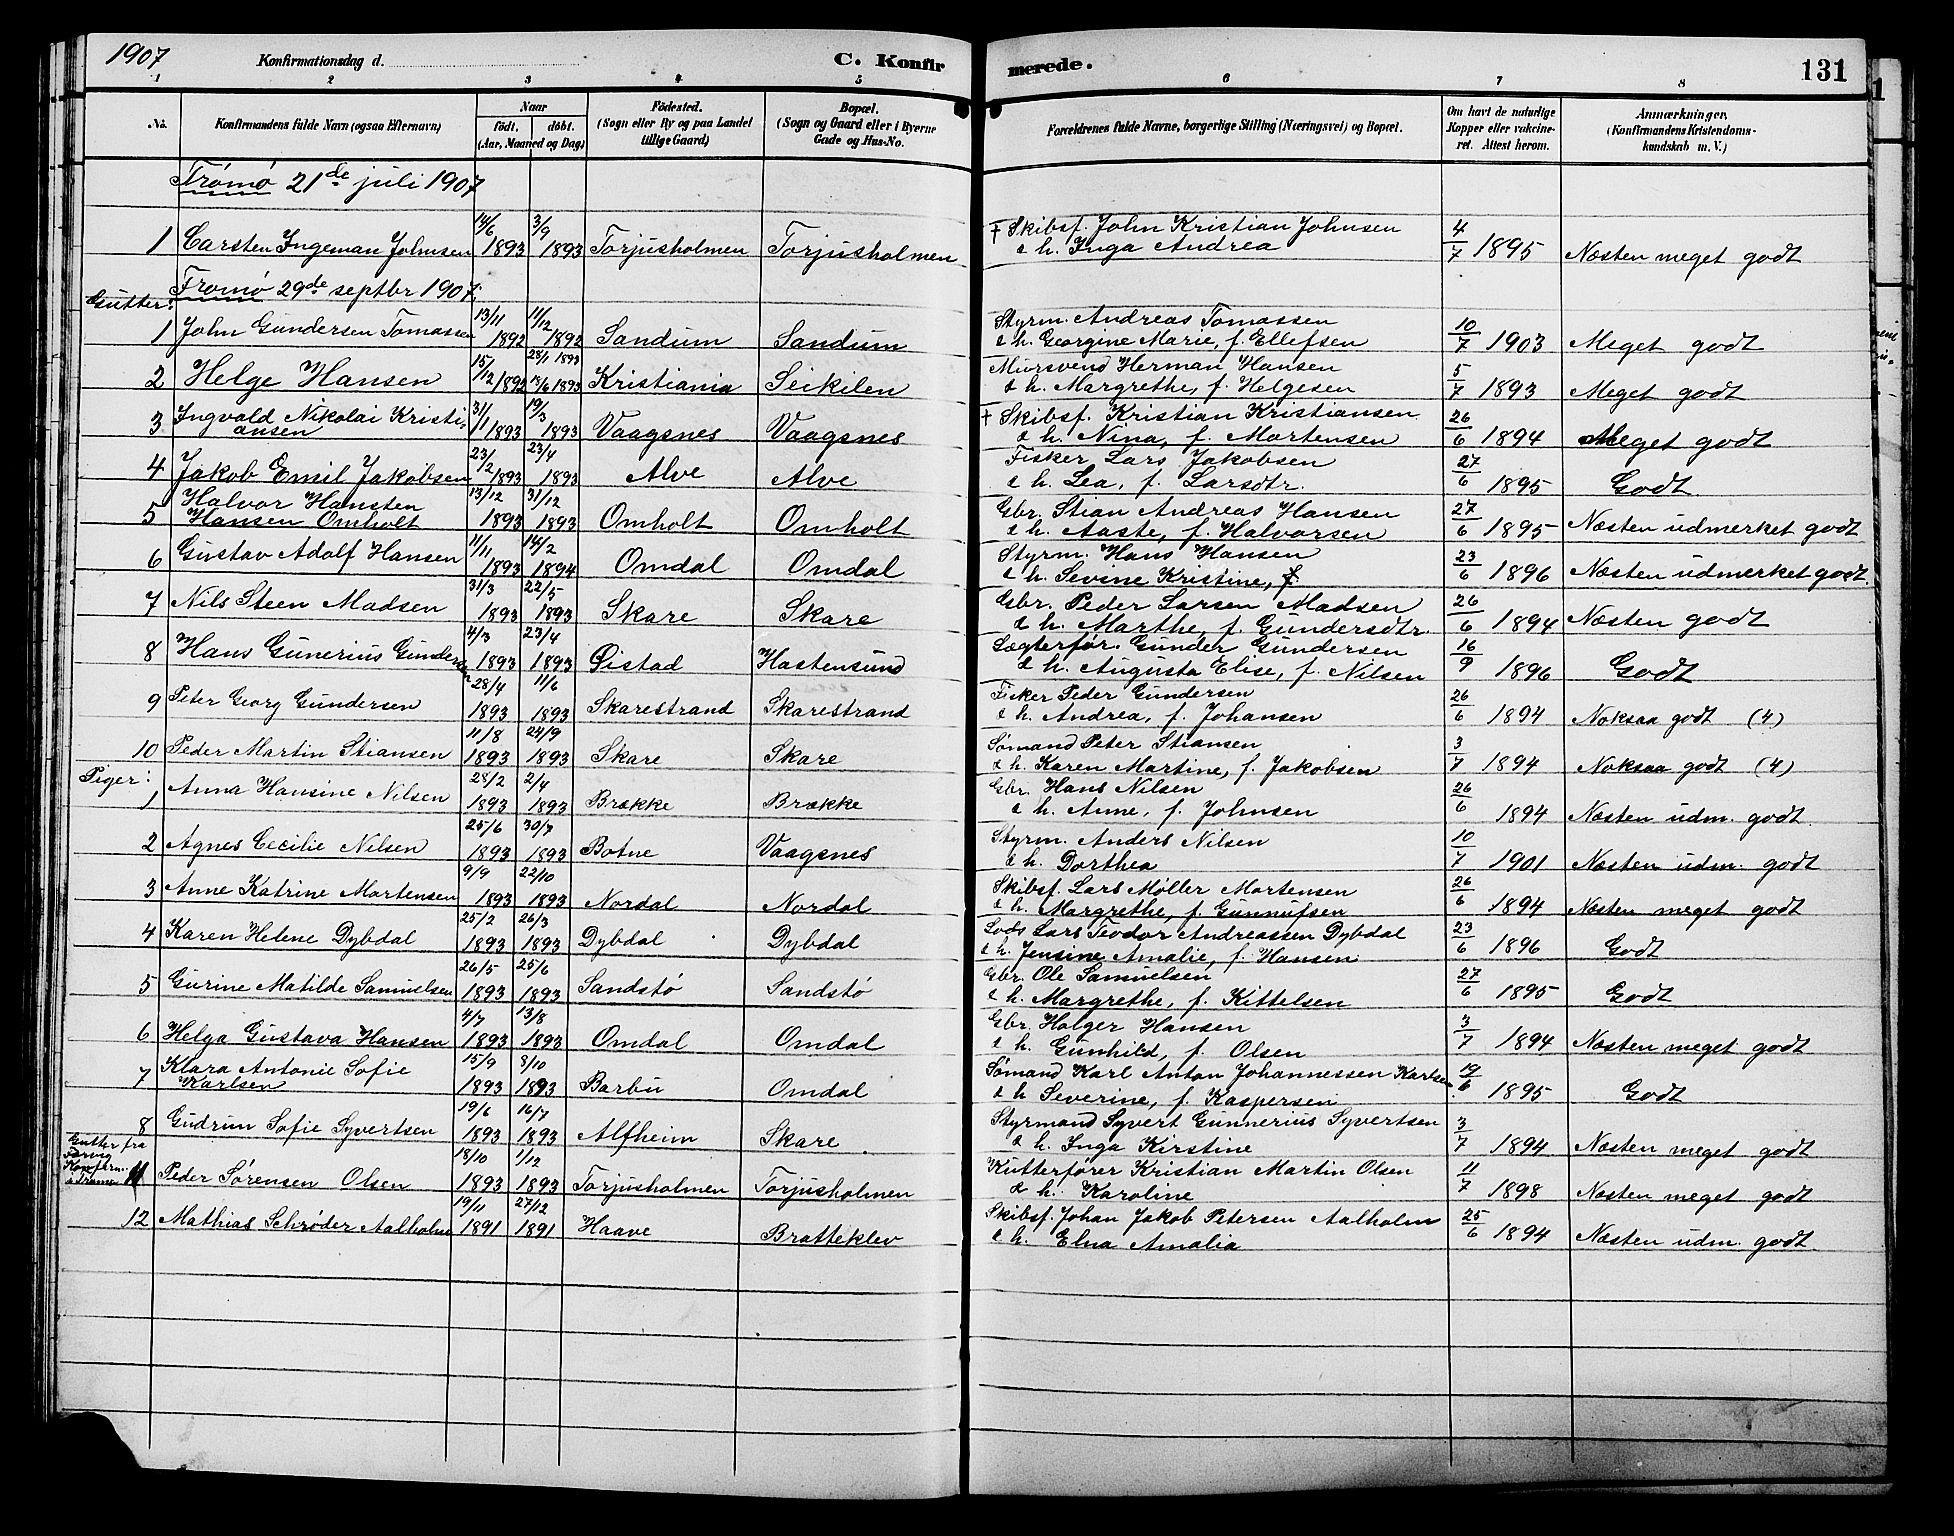 1907 Konfirmationsdag d. C. Konfir merede. 131
1 2 3 4 5 6 7 8
No. Konfirmandens fulde Navn (ogsaa Efternavn) Naar født. døbt. (Aar, Maaned og Dag) Födested. (Sogn eller By og paa Landet tillige Gaard) Bopæl. (Sogn og Gaard eller i Byerne Gade og Hus-No. Forældrenes fulde Navne, borgerlige Stilling (Næringsvei) og Bopæl. Om havt de naturlige Kopper eller vakcineret. Attest herom. Anmærkninger, (Konfirmandens Kristendomskundskab m. V.)
Tromø 21de juli 1907
1 Carsten Ingeman Johnsen 14/6 1893 3/9 1893 Torjusholmen Torjusholmen † Skibsf. John Kristian Johnsen
& h. Inga Andrea 4/7 1895 Næsten meget godt
Tromø 29de septbr 1907.
Gutter:
1 John Gundersen Tomassen 13/11 1892 11/12 1892 Sandum Sandum Styrm. Andreas Tomassen
& h. Georgine Marie, f. Ellefsen 10/7 1903 Meget godt
2 Helge Hansen 15/12 1892 28/1 1893 13/6 1893 Kristiania Seikilen Mursvend Herman Hansen
& h. Margrethe, f. Helgesen 5/7 1893 Meget godt
3 Ingvald Nikolai Kristi-
ansen 31/1 1893 19/3 1893 Vaagsnes Vaagsnes † Skibsf. Kristian Kristiansen
& h. Nina, f. Mortensen 26/6 1894 Meget godt
4 Jakob Emil Jakobsen 23/2 1893 23/4 1893 Alve Alve Fisker Lars Jakobsen
& h. Lea, f. Larsdtr. 27/6 1895 Godt.
5 Halvor Hansten
Hansen Omholt 13/12 1893 31/12 1893 Omholt Omholt Gbr. Stian Andreas Hansen
& h. Aaste, f. Halvorsen 27/6 1895 Næsten udmerket godt
6 Gustav Adolf Hansen 11/11 1893 14/2 1894 Omdal Omdal Styrm. Hans Hansen
& h. Sevine Kristine, f. 23/6 1896 Næsten udmerket godt.
7 Nils Steen Madsen 31/3 1893 22/5 1893 Skare Skare Gbr. Peder Larsen Madsen
& h. Marthe, f. Gundersdtr. 26/6 1894 Næsten godt
8 Hans Gunerius Gundersen 4/3 1893 23/4 1893 Øistad Hastensund Lægterfør. Gunder Gundersen
& h. Augusta Elise, f. Nilsen 16/9 1896 Godt
9 Peter Georg Gundersen 28/4 1893 11/6 1893 Skarestrand Skarestrand Fisker Peder Gundersen
& h. Andrea, f. Johansen 26/6 1894 Noksaa godt (4)
10 Peder Martin Stiansen 11/8 1893 24/9 1893 Skare Skare Sømand Peter Stiansen
& h. Karen Martine, f. Jakobsen 3/7 1894 Noksaa godt (4)
Piger:
1 Anna Hansine Nilsen 28/2 1893 2/4 1893 Brække Brække Gbr. Hans Nilsen
& h. Anne, f. Johnsen 26/6 1894 Næsten udm. godt.
2 Agnes Cecilie Nilsen 25/6 1893 30/7 1893 Botne Vaagsnes Styrm. Anders Nilsen
& h. Dorthea 10/7 1901 Næsten udm. godt
3 Anne Katrine Mortensen 9/9 1893 22/10 1893 Nordal Nordal Skibsf. Lars Møller Mortensen
& h. Margrethe, f. Gunnufsen 26/6 1894 Næsten meget godt
4 Karen Helene Dybdal 25/2 1893 26/3 1893 Dybdal Dybdal Lods Lars Teodor Andreassen Dybdal
& h. Jensine Amalie, f. Hansen 23/6 1896 Godt
5 Gurine Matilde Samuelsen 26/5 1893 25/6 1893 Sandstø Sandstø Gbr. Ole Samuelsen
& h. Margrethe, f. Kittelsen 27/6 1895 Godt
6 Helga Gustava Hansen 4/7 1893 13/8 1893 Omdal Omdal Gbr. Holger Hansen
& h. Gunhild, f. Olsen 3/7 1894 Næsten meget godt
7 Klara Antonie Sofie
Karlsen 15/9 1893 8/10 1893 Barbu Omdal Sømand Karl Anton Johannessen Karlsen
& h. Severine, f. Kaspersen 19/6 1895 Godt
8 Gudrun Sofie Syvertsen 19/6 1893 16/7 1893 Alfheim Skare Styrmand Syvert Gunnerius Syvertsen
& h. Inga Kirstine 3/7 1894 Næsten meget godt
Gutter fra
Færvig
Konfirm.
i Tromø
11 Peder Sørensen Olsen 18/10 1893 1/12 1893 Torjusholmen Torjusholmen Kutterfører Kristian Martin Olsen
& h. Karoline 11/7 1898 Næsten meget godt
12 Mathias Schrøder Aalholm 19/11 1891 27/12 1891 Haave Bratteklev Skibsf. Johan Jakob Petersen Aalholm
& h. Elna Amalia 25/6 1894 Næsten udm. godt.